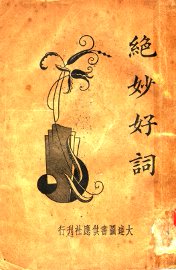 絕妙好詞
大達圖書供應社刋行